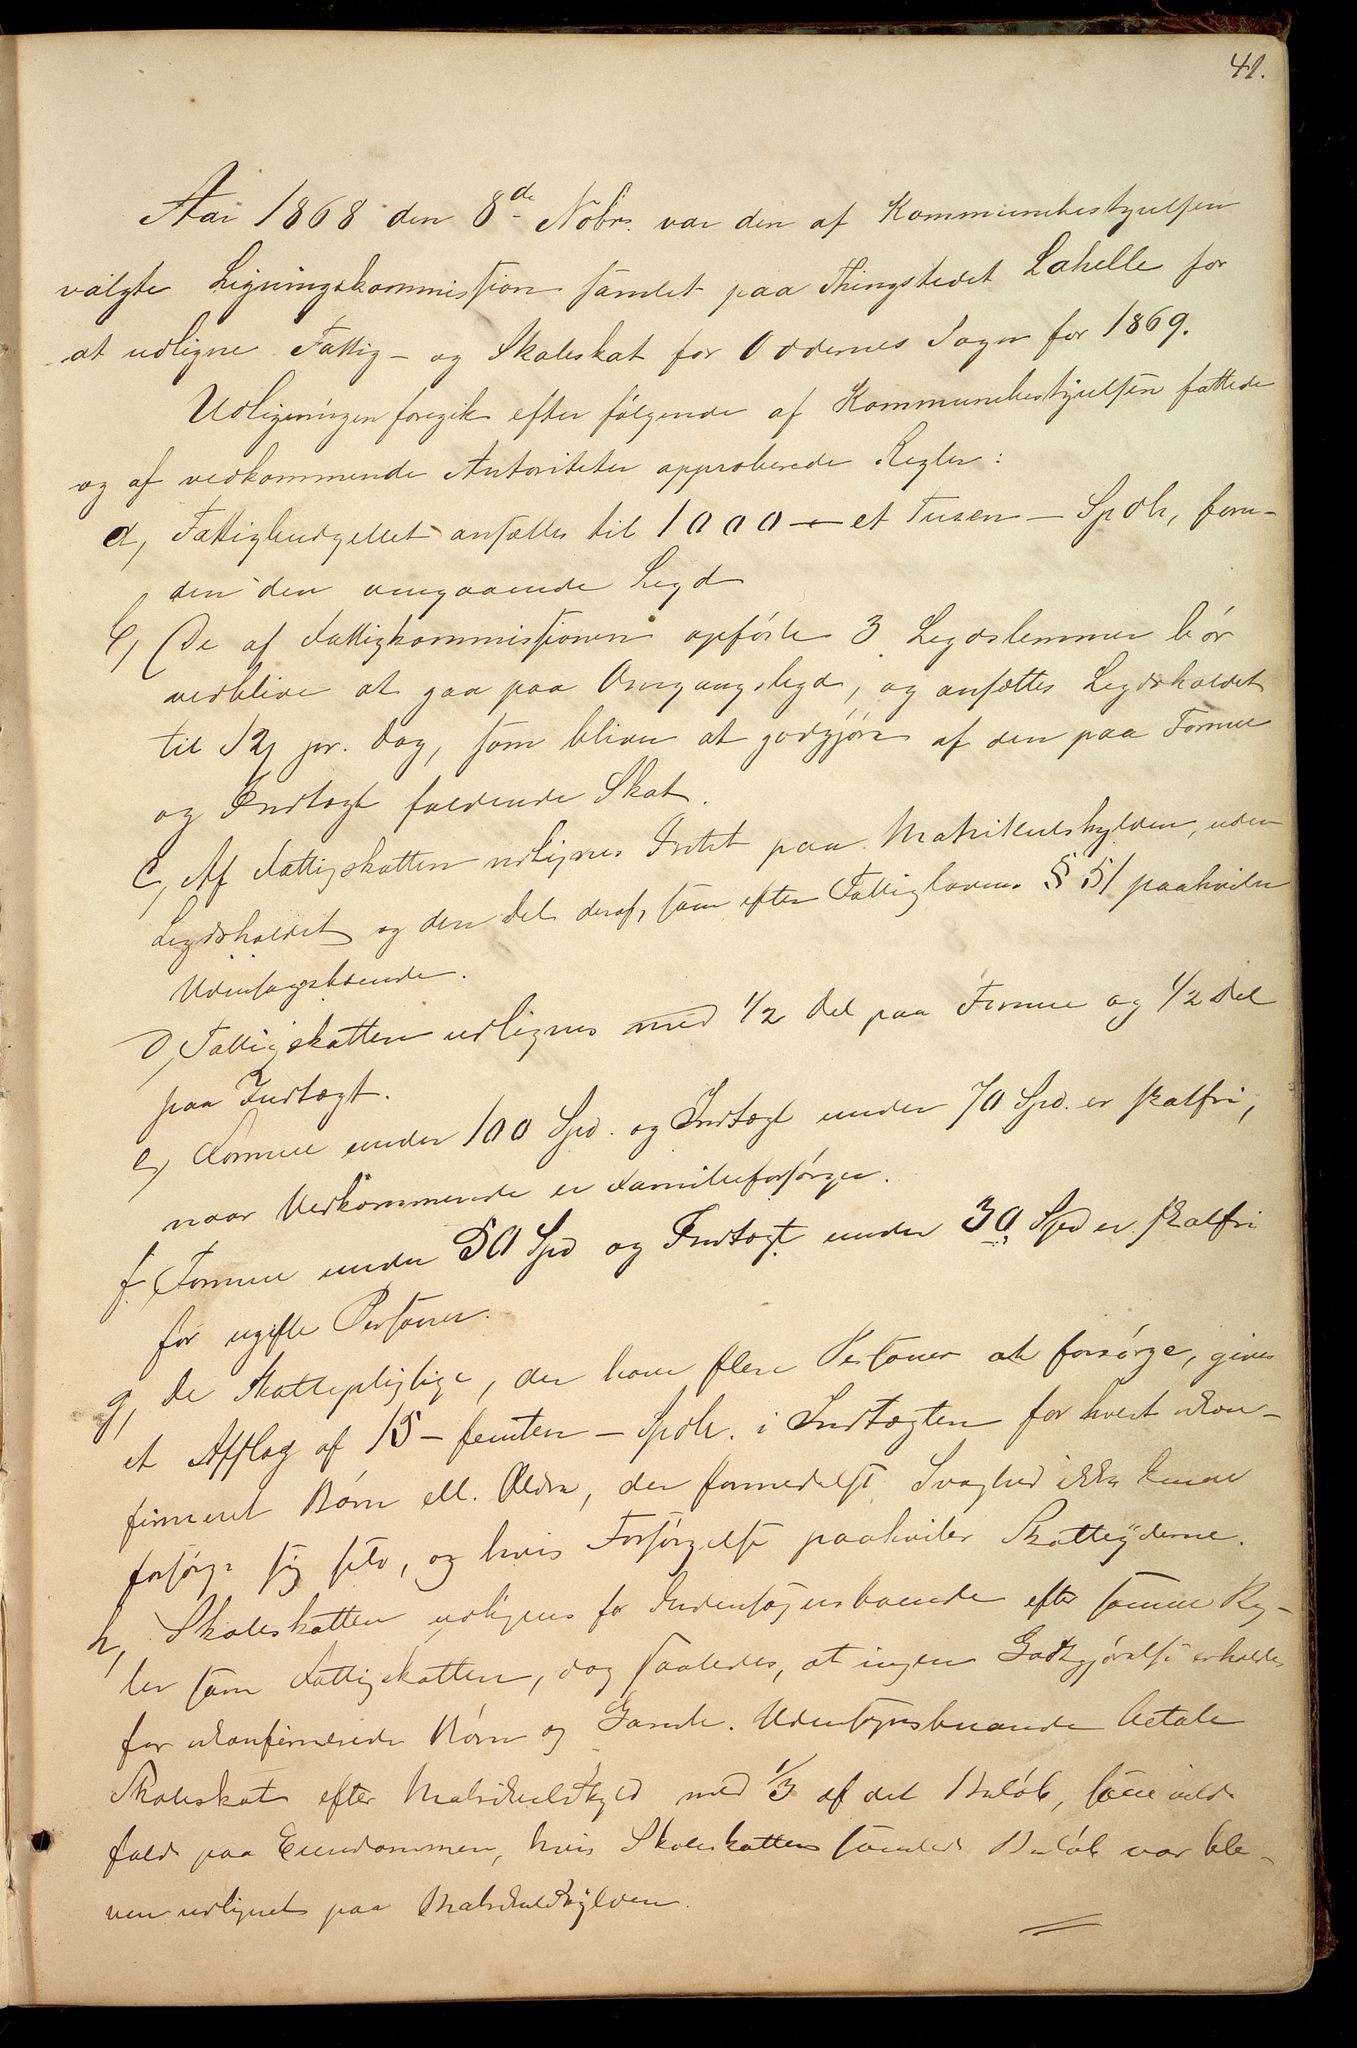 41.
Aar 1868 den 8de Nobr. var den af Kommunebestyrelsen
valgte Ligningskommission samlet paa Thingstedet Lahelle for
at udligne Fattig- og Skoleskat for Oddernes Sogn for 1869.
Udligningen foregik efter følgende af Kommunebestyrelsen fattede
og af vedkommende Autoriteter approberede Regler:
a, Fattigbudgettet ansættes til 1000 - et Tusen - Spdlr, foru-
den den omgaaende Legd
b, De af Fattigkommissionen opførte 3 Legdslemmer bør
vedblive at gaa paa Omgangslegd, og ansættes Legdsholdet
til 12 pr. Dag, som bliver at godgjøre af den paa Formue
og Indtægt faldende Skat.
c, Af Fattigskatten udlignes Intet paa Matrikulskylden, uden
Legdsholdet og den Del deraf, som efter Fattiglovens § 51 paahviler
Udensognsboende.
d, Fattigskatten udlignes med 1/2 Del paa Formue og 1/2 Del
paa Indtægt.
e, Formue under 100 Spd. og Indtægt under 70 Spd. er skatfri,
naar Vedkommende er Familieforsørger.
f, Formue under 50 Spd og Indtægt under 30 Spd er skatfri
for ugifte Personer.
g, De Skattepligtige, der have flere Personer at forsørge, gives
et Afslag af 15 - femten - Spdlr. i Indtægten for hvert ukon-
firmeret Børn ell. Ældre, der formedelst Svaghed ikke kunne
forsørge sig selv, og hvis Forsørgelse paahviler Skatteyderne.
h, Skoleskatten udlignes for Indensognsboende efter samme Reg-
ler som Fattigskatten, dog saaledes, at ingen Godtgjørelse erholdes
for ukonfirmerede Børn og Gamle. Udensognsboende betale
Skoleskat efter Matrikulskyld med 1/3 af det Beløb, som vilde
falde paa Eiendommen, hvis Skoleskattens samlede Beløb var ble-
ven udlignet paa Matrikulskylden.